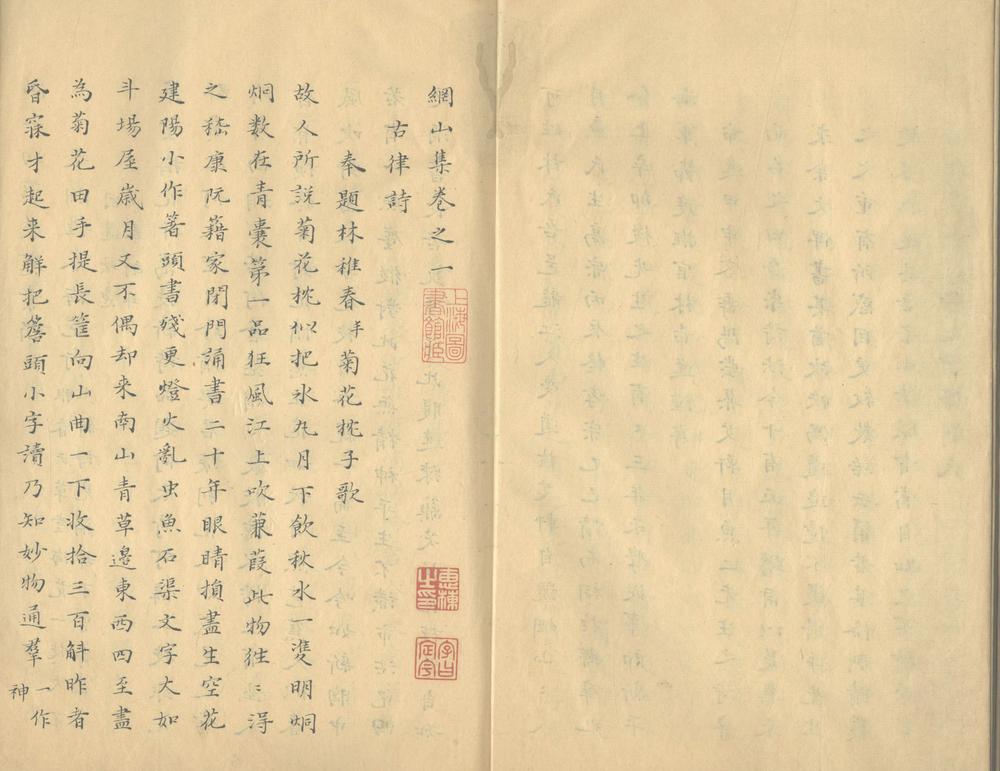 網山集卷之一
古律詩
奉題林稚春丰菊花枕子歌
故人所説菊花枕似把氷丸月下飲秋水一雙明烱
烱数在青囊第一品狂風江上吹蒹葭此物徃〻淂
之嵇康阮籍家閉門誦書二十年眼睛損盡生空花
建陽小作著頭書殘更燈火亂虫魚石渠文字大如
斗場屋歲月又不偶却来南山青草邊東西四至盡
為菊花田手提長筐向山曲一下收拾三百斛昨者
昏寐才起来解把簷頭小字讀乃知妙物通群
一作
神
上海圖
書館藏
惠棟
之印
字曰
定宇